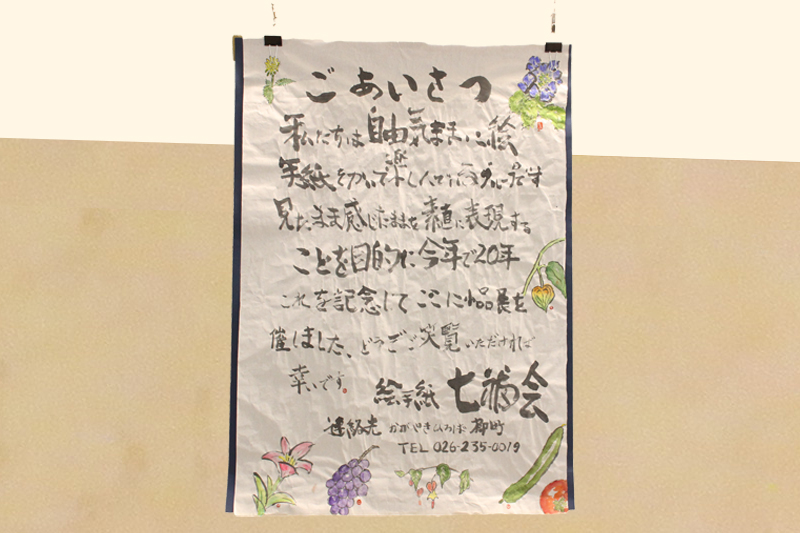 ごあいさつ
私たちは自由気ままに絵
手紙をかいて楽しんでいるグループです
見たまま感じたままを素直に表現する
ことを目的に今年で20年
これを記念してここに小品展を
催しました、どうぞご笑覧いただければ
幸いです。
絵手紙 七福会
連絡先 かがやきひろば柳町
TEL 026-235-0019